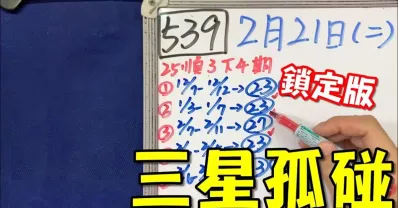 539 2月21日(二)
25順3下4期
① 12/7-12/12→23
② 1/3-1/7→23
③ 2/7-2/11→27
鎖定版
三星孤碰